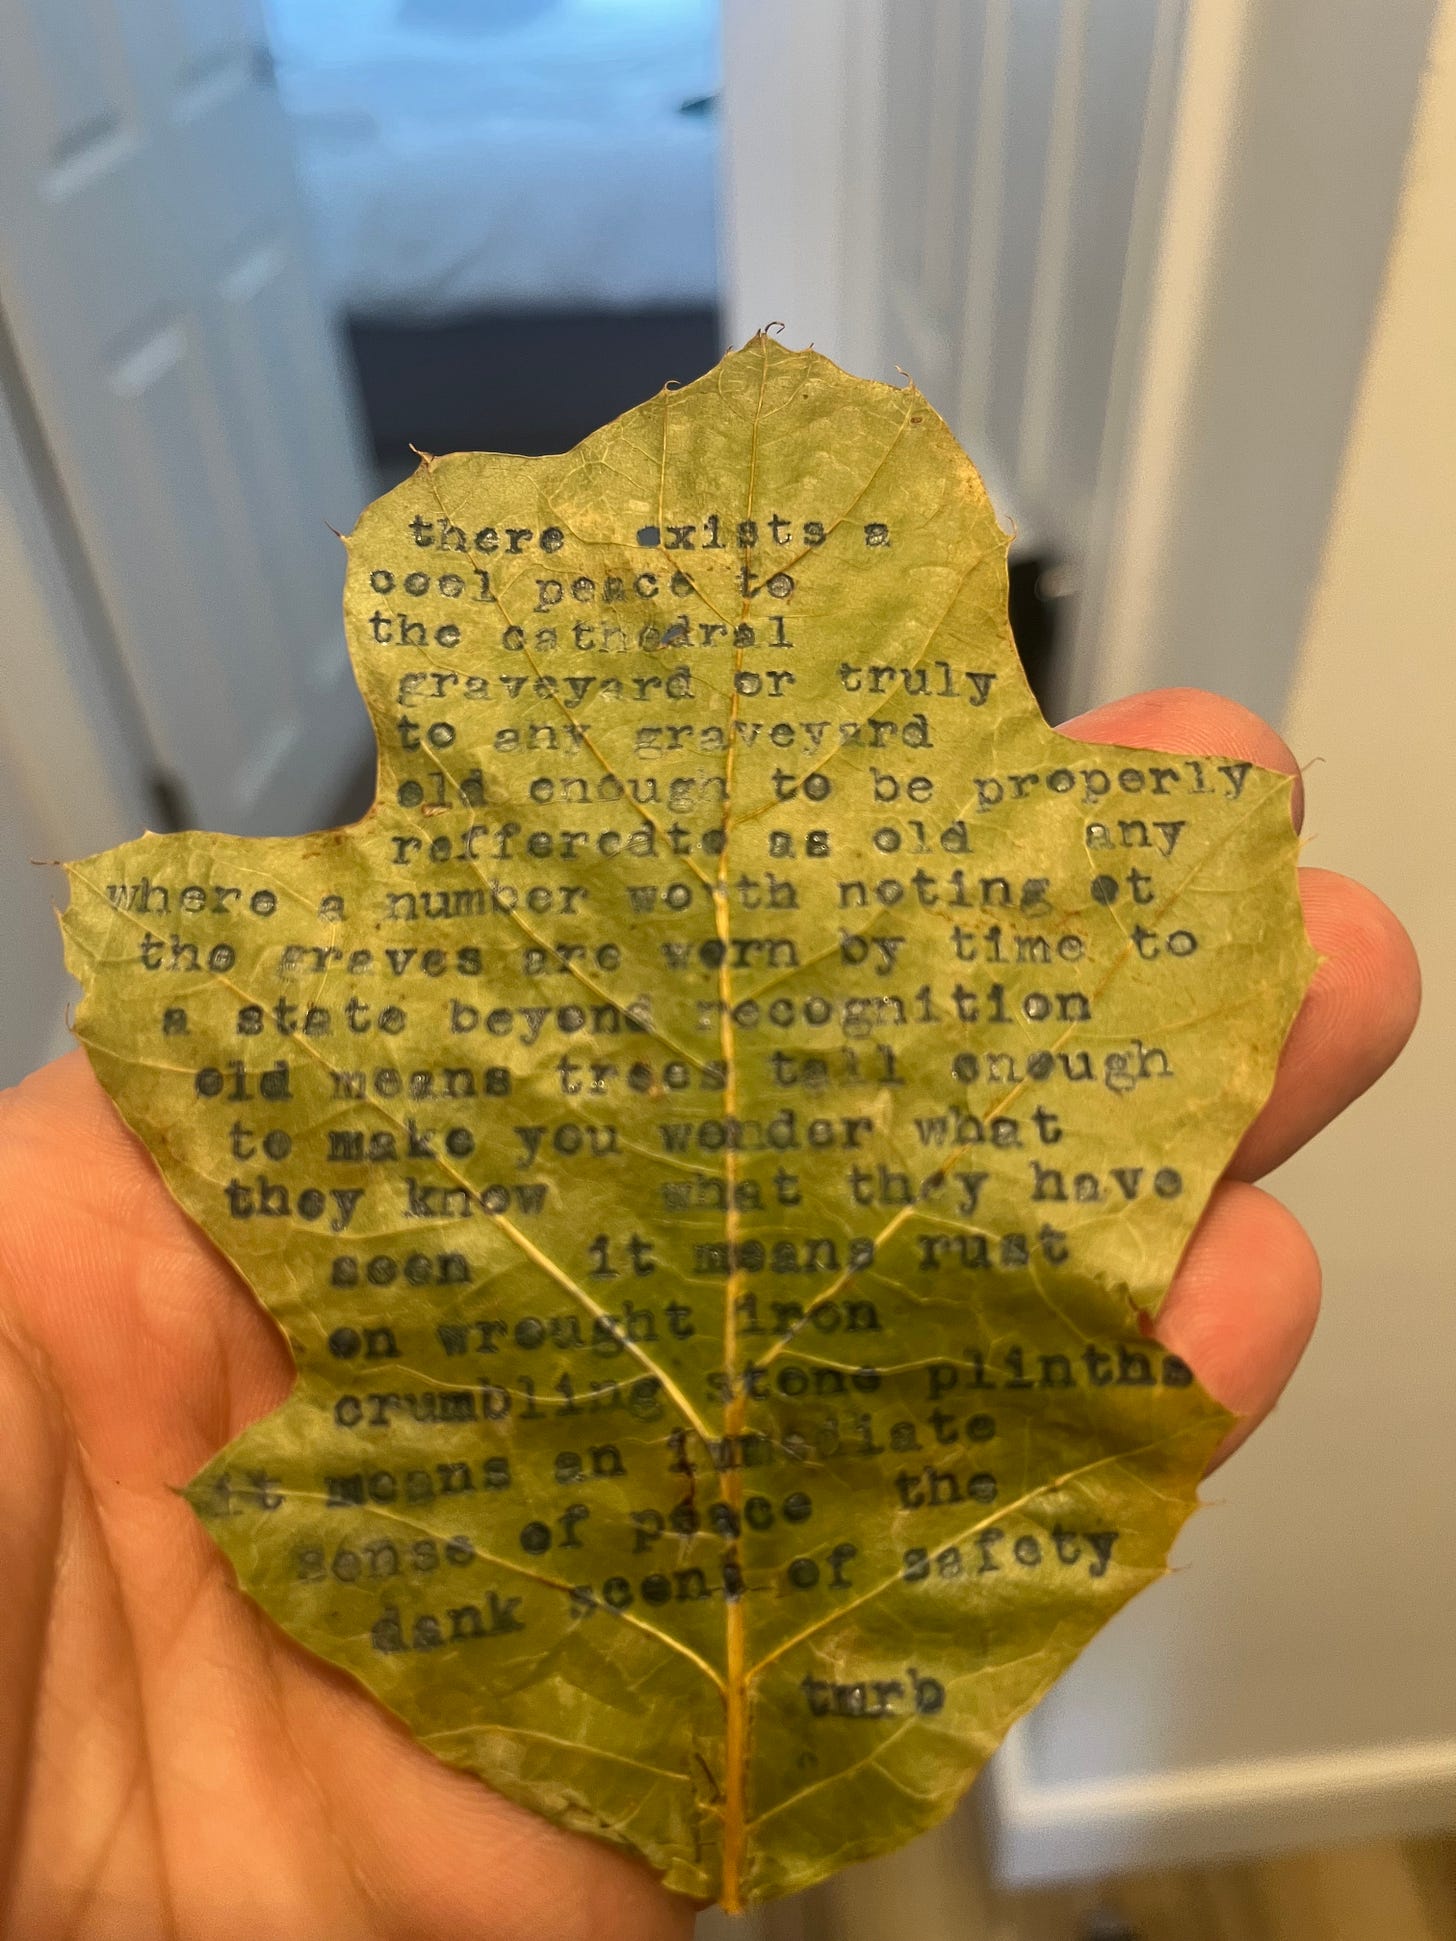 there exists a
cool peace to
the cathedral
graveyard or truly
to any graveyard
old enough to be properly
reffferedto as old any
where a number wo th noting ot
the graves are worn by time to
a state beyond recognition
old means trees tall enough
to make you wonder what
they know what they have
seen it means rust
on wrought iron
crumbling stone plinths
it means an immediate
sense of peace the
dank scent of safety
tmrb